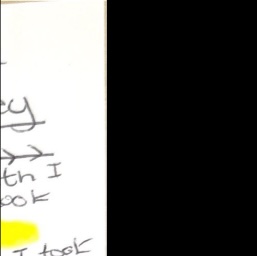 ey
th I
ook
I took